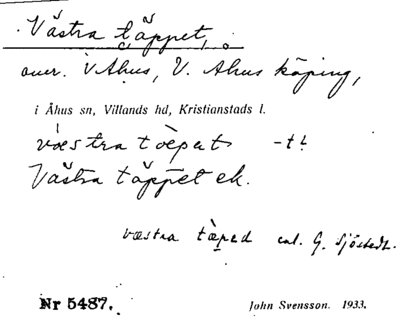 Västra täppet,
åuer. i Åhus, V. Åhus köping,
i Åhus sn, Villands hd, Kristianstads l.
væstra tæpat -t
Västra täppet ek.
væstra tæped enl. G. Sjöstedt.
Nr 5487. John Svensson. 1933.